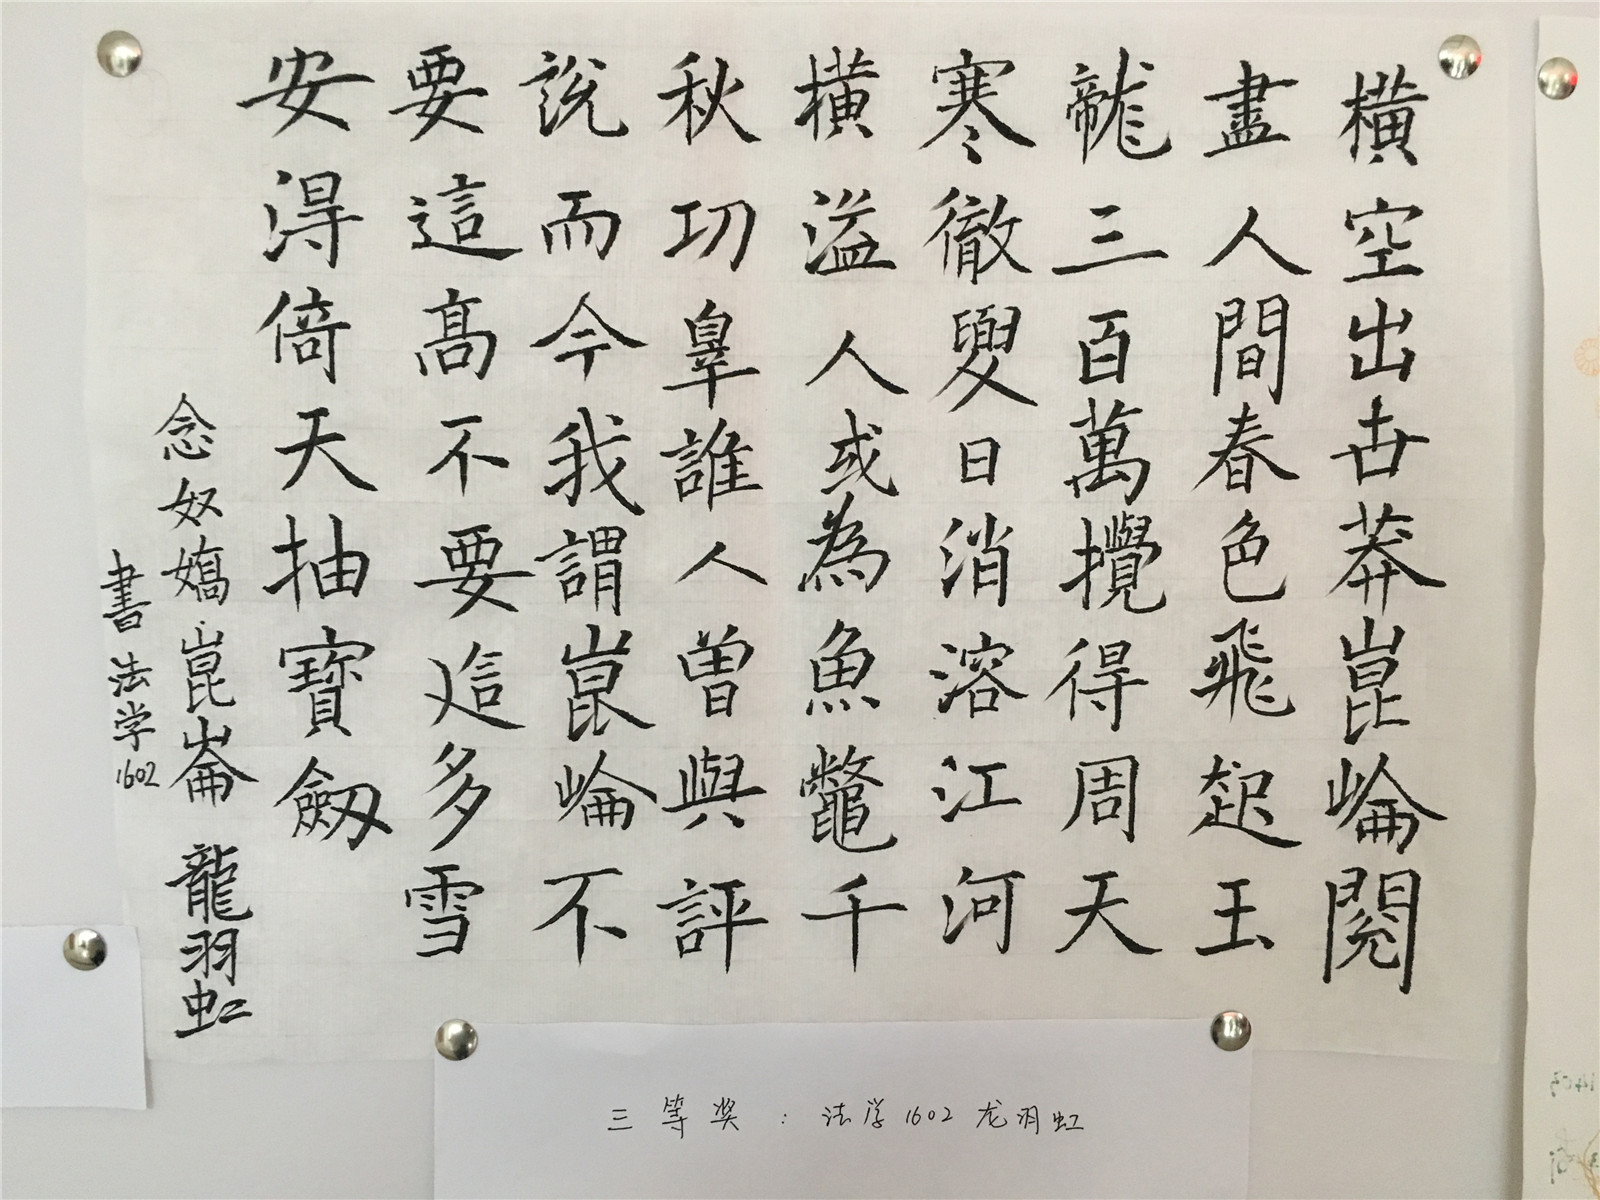 橫空出世莽崑崙閱
盡人間春色飛起玉
龍三百萬攪得周天
寒徹夏日消溶江河
橫溢人或為魚鱉千
秋功辠誰人曾與評
說而今我謂崑崙不
要這高不要這多雪
安得倚天抽寶劍
念奴嬌·崑崙 龍羽虹
書 法学1602
三等奖：法学1602 龙羽虹
1403